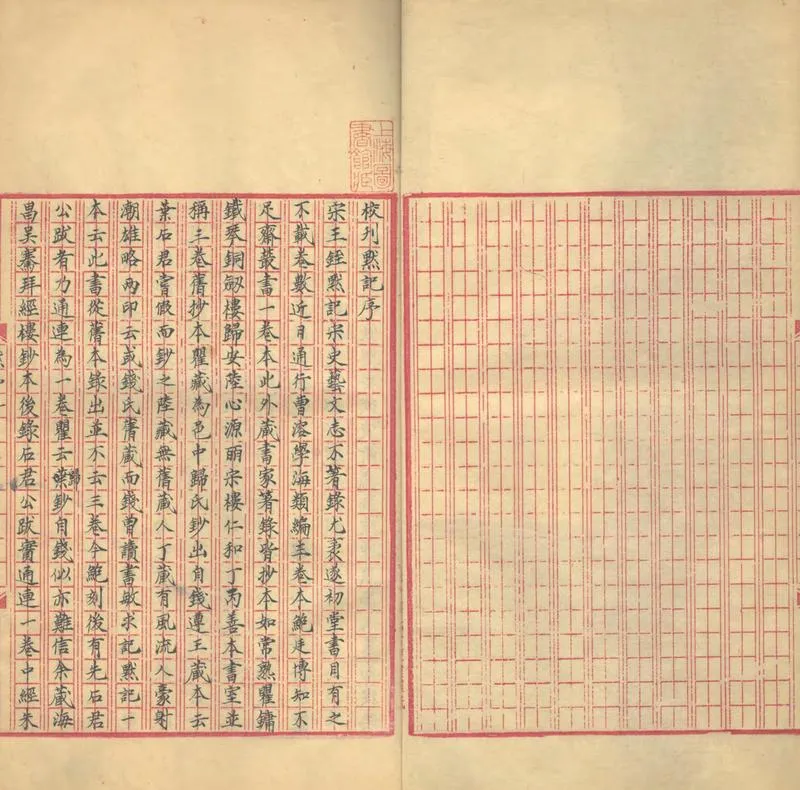 上海圖
書館藏
校刊默記序
宋王銍默記宋史藝文志不著錄尤袤遂初堂書目有之
不載卷數近日通行曹溶學海類編三卷本鮑廷博知不
足齋叢書一卷本此外藏書家著錄皆抄本如常熟瞿鏞
鐵琴銅劔樓歸安陸心源皕宋樓仁和丁丙善本書室並
稱三卷舊抄本瞿藏為邑中歸氏鈔出自錢遵王藏本云
葉石君嘗假而鈔之陸藏無舊藏人丁藏有風流人豪射
潮雄略兩印云或錢氏舊藏而錢曾讀書敏求記默記一
本云此書從舊本錄出並不云三卷今鮑刻後有先石君
公跋者力通連為一卷瞿云葉歸鈔自錢似亦難信余藏海
昌吳騫拜經樓鈔本後錄石君公跋實通連一卷中經朱